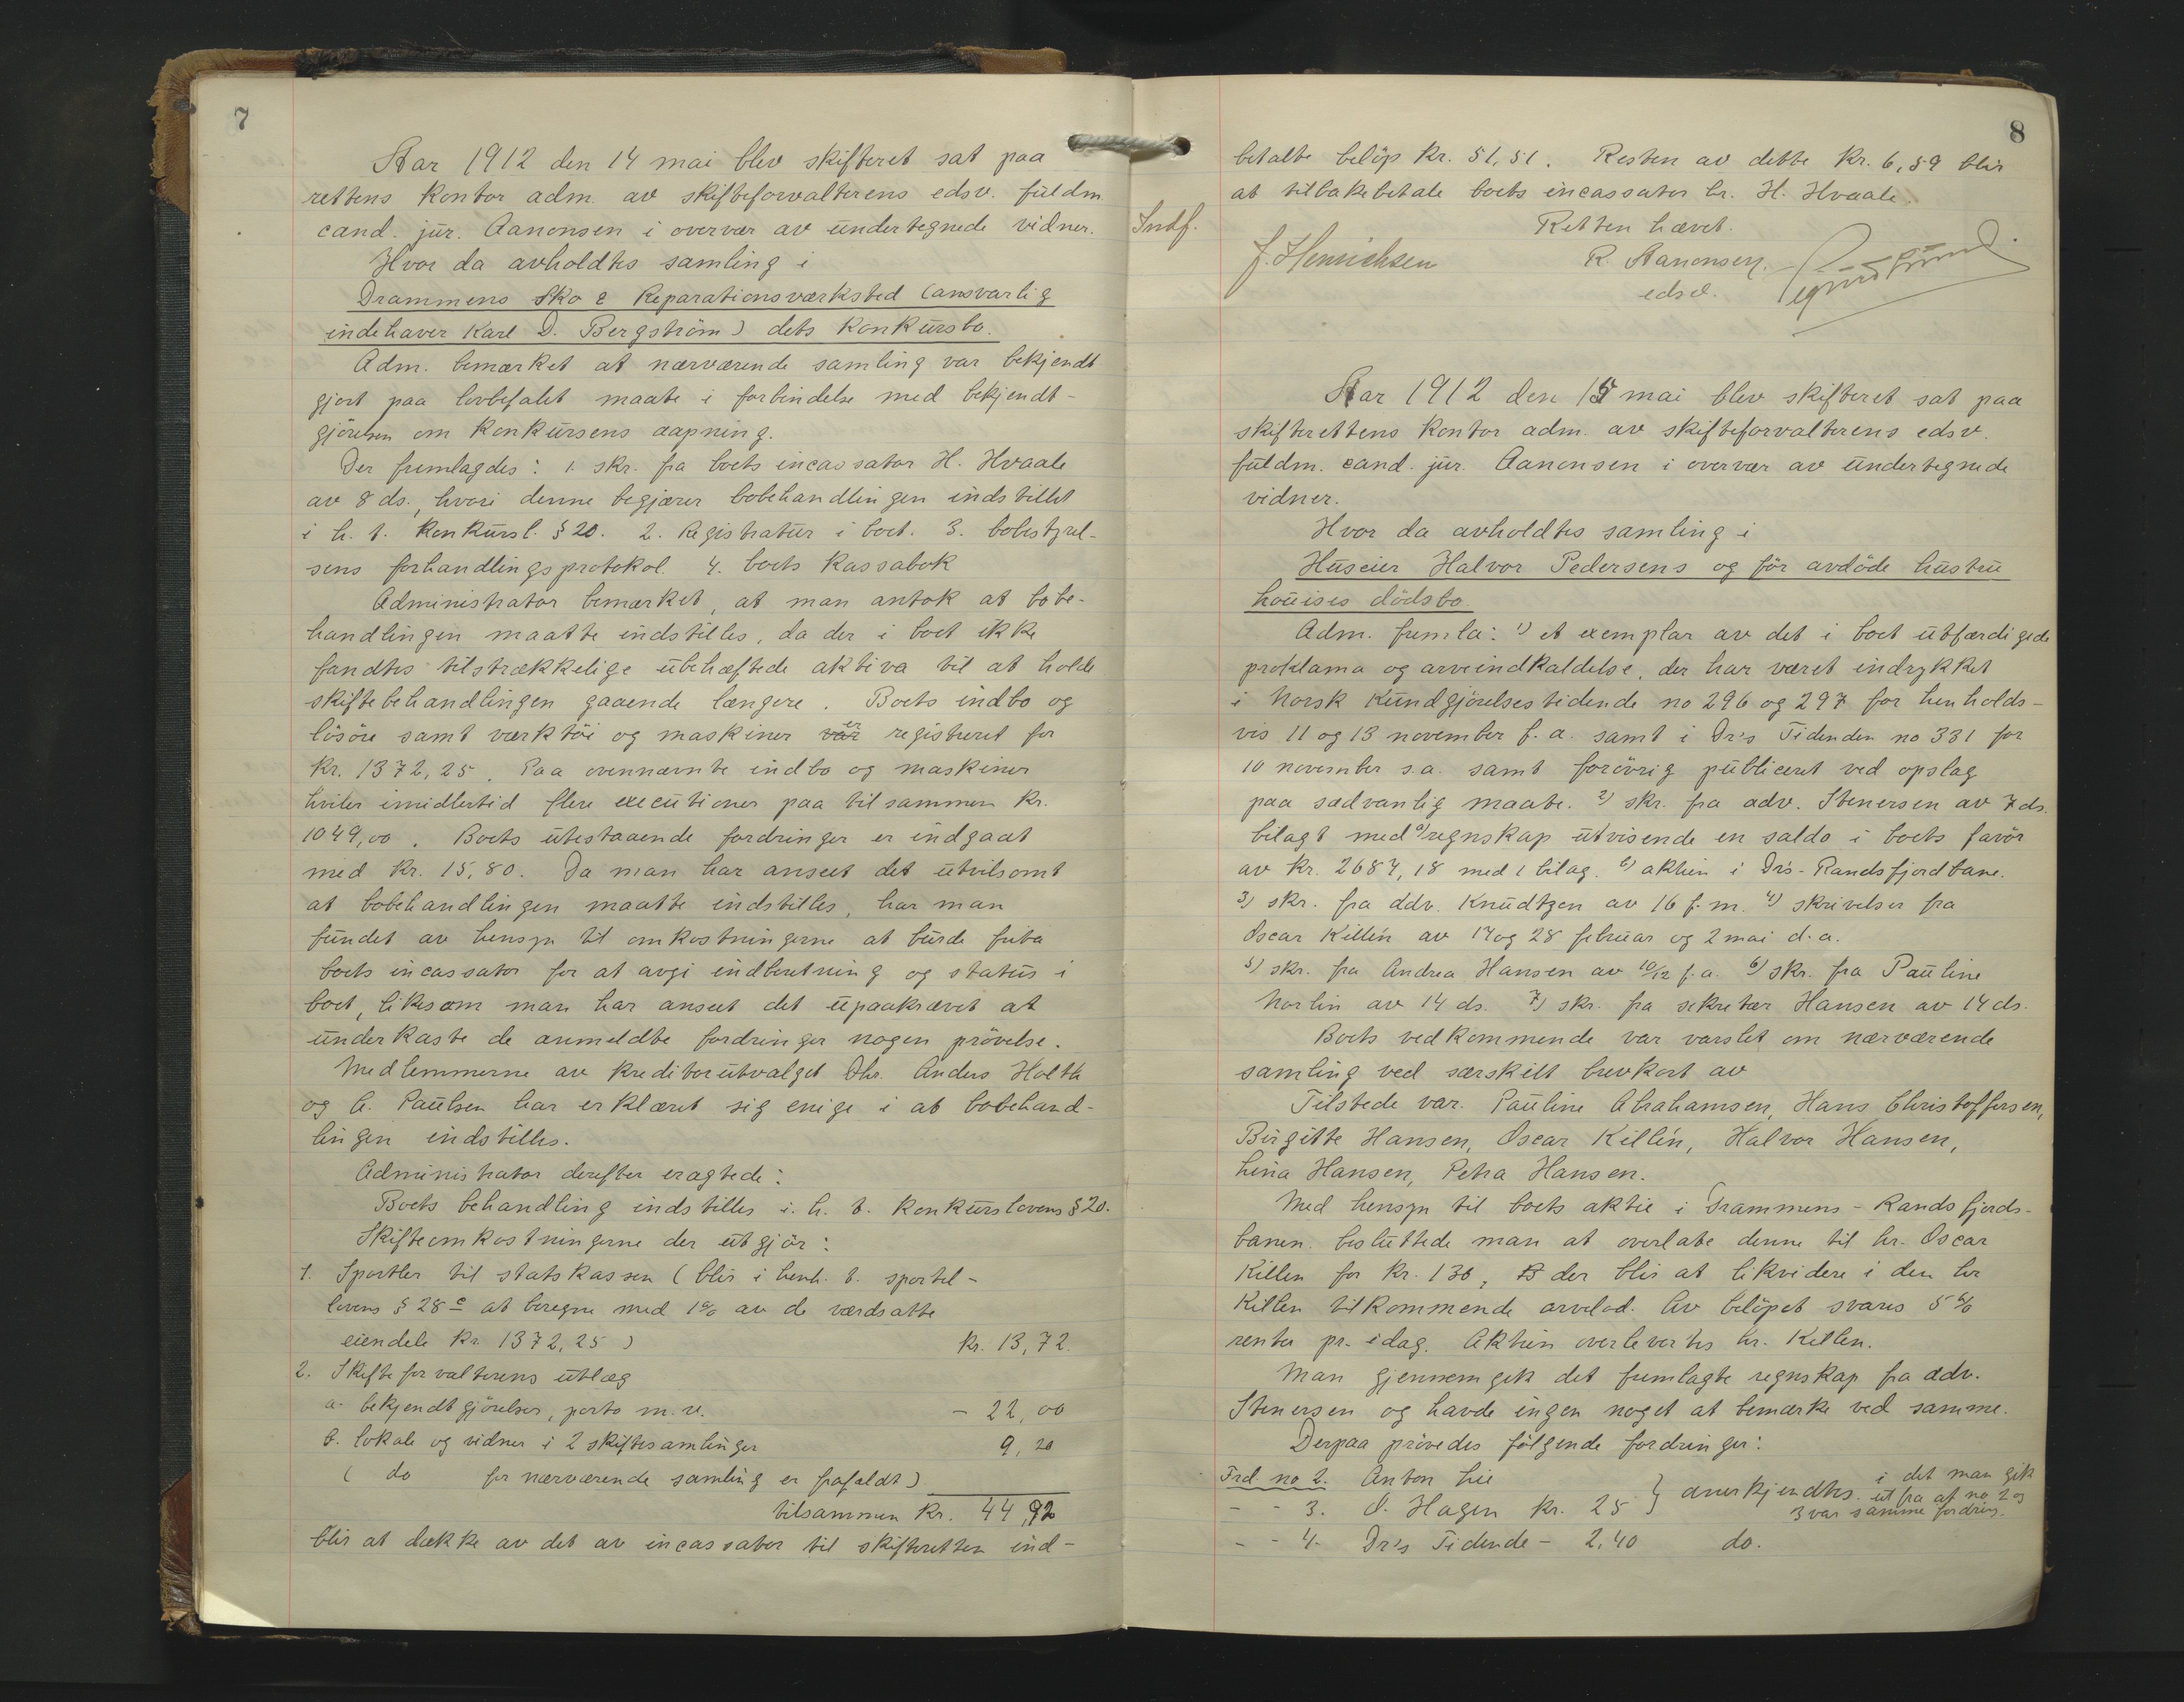 7
Aar 1912 den 14 mai blev skifteret sat paa
rettens kontor adm. av skifteforvalterens edsv. fuldm
cand. jur. Aanonsen i overvær av undertegnede vidner.
Hvor da avholdtes samling i
Drammens Sko & Reparationsværksted (ansvarlig
indehaver Karl D. Bergström) dets konkursbo.
Adm. bemærket at nærværende samling var bekjendt
gjort paa lovbefalet maate i forbindelse med bekjendt-
gjörelsen om konkursens aapning.
Der fremlagdes: 1. skr. fra boets incassator H. Hvaale
av 8 ds., hvori denne begjærer bobehandlingen indstillet
i h. t. konkursl. § 20. 2. Registratur i boet. 3. bobestyrel-
sens forhandlingsprotokol. 4. boets kassabok
Administrator bemærket, at man antok at bobe-
handlingen maatte indstilles, da der i boet ikke
fandtes tilstrækkelige ubehæftede aktiva til at holde
skiftebehandlingen gaaende længere. Boets indbo og
lösöre samt værktöi og maskiner var er registreret for
kr. 1372,25. Paa ovennævnte indbo og maskiner
hviler imidlertid flere executioner paa tilsammen kr.
1049,00. Boets utestaaende fordringer er indgaat
med kr. 15,80. Da man har anseet det utvilsomt
at bobehandlingen maatte indstilles, har man
fundet av hensyn til omkostningerne at burde frita
boets incassator for at avgi indberetning og status i
boet, likesom man har anseet det upaakrævet at
underkaste de anmeldte fordringer nogen prövelse.
Medlemmerne av kreditorutvalget Dhr. Anders Holth
og A. Paulsen har erklæret sig enige i at bobehand-
lingen indstilles.
Administrator derefter eragtede:
Boets behandling indstilles i. h. t. konkurslovens § 20.
Skifteomkostningerne der utgjör:
1. Sportler til statskassen (blir i henh. t. sportel-
lovens § 28 c at beregne med 1% av de værdsatte
eiendele kr. 1372,25) kr. 13,72.
2. Skifteforvalterens utlæg
a. bekjendtgjörelser, porto m. v. - 22,00
b. lokale og vidner i 2 skiftesamlinger 9,20
( do for nærværende samling er frafaldt)
tilsammen kr. 44,92
blir at dække av det av incassator til skifteretten ind-
8
betalte belöp kr. 51,51. Resten av dette kr. 6,59 blir
at tilbakebetale boets incassator hr. H. Hvaale.
Indf.
Retten hævet.
J. Henrichsen R. Aanonsen.
edsv.
Aar 1912 den 15 mai blev skifteret sat paa
skifterettens kontor adm. av skifteforvalterens edsv.
fuldm. cand. jur. Aanonsen i overvær av undertegnede
vidner.
Hvor da avholdtes samling i
Huseier Halvor Pedersens og för avdöde hustru
Louises dödsbo.
Adm. fremla: 1) et exemplar av det i boet utfærdigede
proklama og arveindkaldelse, der har været indrykket
i Norsk Kundgjörelsestidende no 296 og 297 for henholds-
vis 11 og 13 november f. a. samt i Dr's Tidenden no 331 for
10 november s.a. samt forövrig publiceret ved opslag
paa sædvanlig maate. 2) skr. fra adv. Stenersen av 7 ds.
bilagt med a) regnskap utvisende en saldo i boets favör
av kr. 2687,18 med 1 bilag. b) aktien i Dr's-Randsfjordbane.
3) skr. fra adv. Knudtzen av 16 f. m. 4) skrivelser fra
Oscar Killén av 17 og 28 februar og 2 mai d. a.
5) skr. fra Andrea Hansen av 10/12 f. a. 6) skr. fra Pauline
Norlin av 14 ds. 7) skr. fra sekretær Hansen av 14 ds.
Boets vedkommende var varslet om nærværende
samling ved særskilt brevkort av
Tilstede var. Pauline Abrahamsen, Hans Christoffersen,
Birgitte Hansen, Oscar Killén, Halvor Hansen,
Lina Hansen, Petra Hansen.
Med hensyn til boets aktie i Drammens-Randsfjords-
banen. besluttede man at overlate denne til hr. Oscar
Killen for kr. 136, der blir at likvidere i den hr
Killen tilkommende arvelod. Av belöpet svares 5%
renter pr. idag. Aktien overlevertes hr. Killen.
Man gjennemgik det fremlagte regnskap fra adv.
Stenersen og havde ingen noget at bemærke ved samme.
Derpaa prövedes fölgende fordringer:
Frd. no 2. Anton Lie
- - 3. O. Hagen kr. 25 } anerkjendtes. i det man gik
ut fra at no 2 og
3 var samme fordring.
- - 4. Dr's Tidende - 2,40 do.